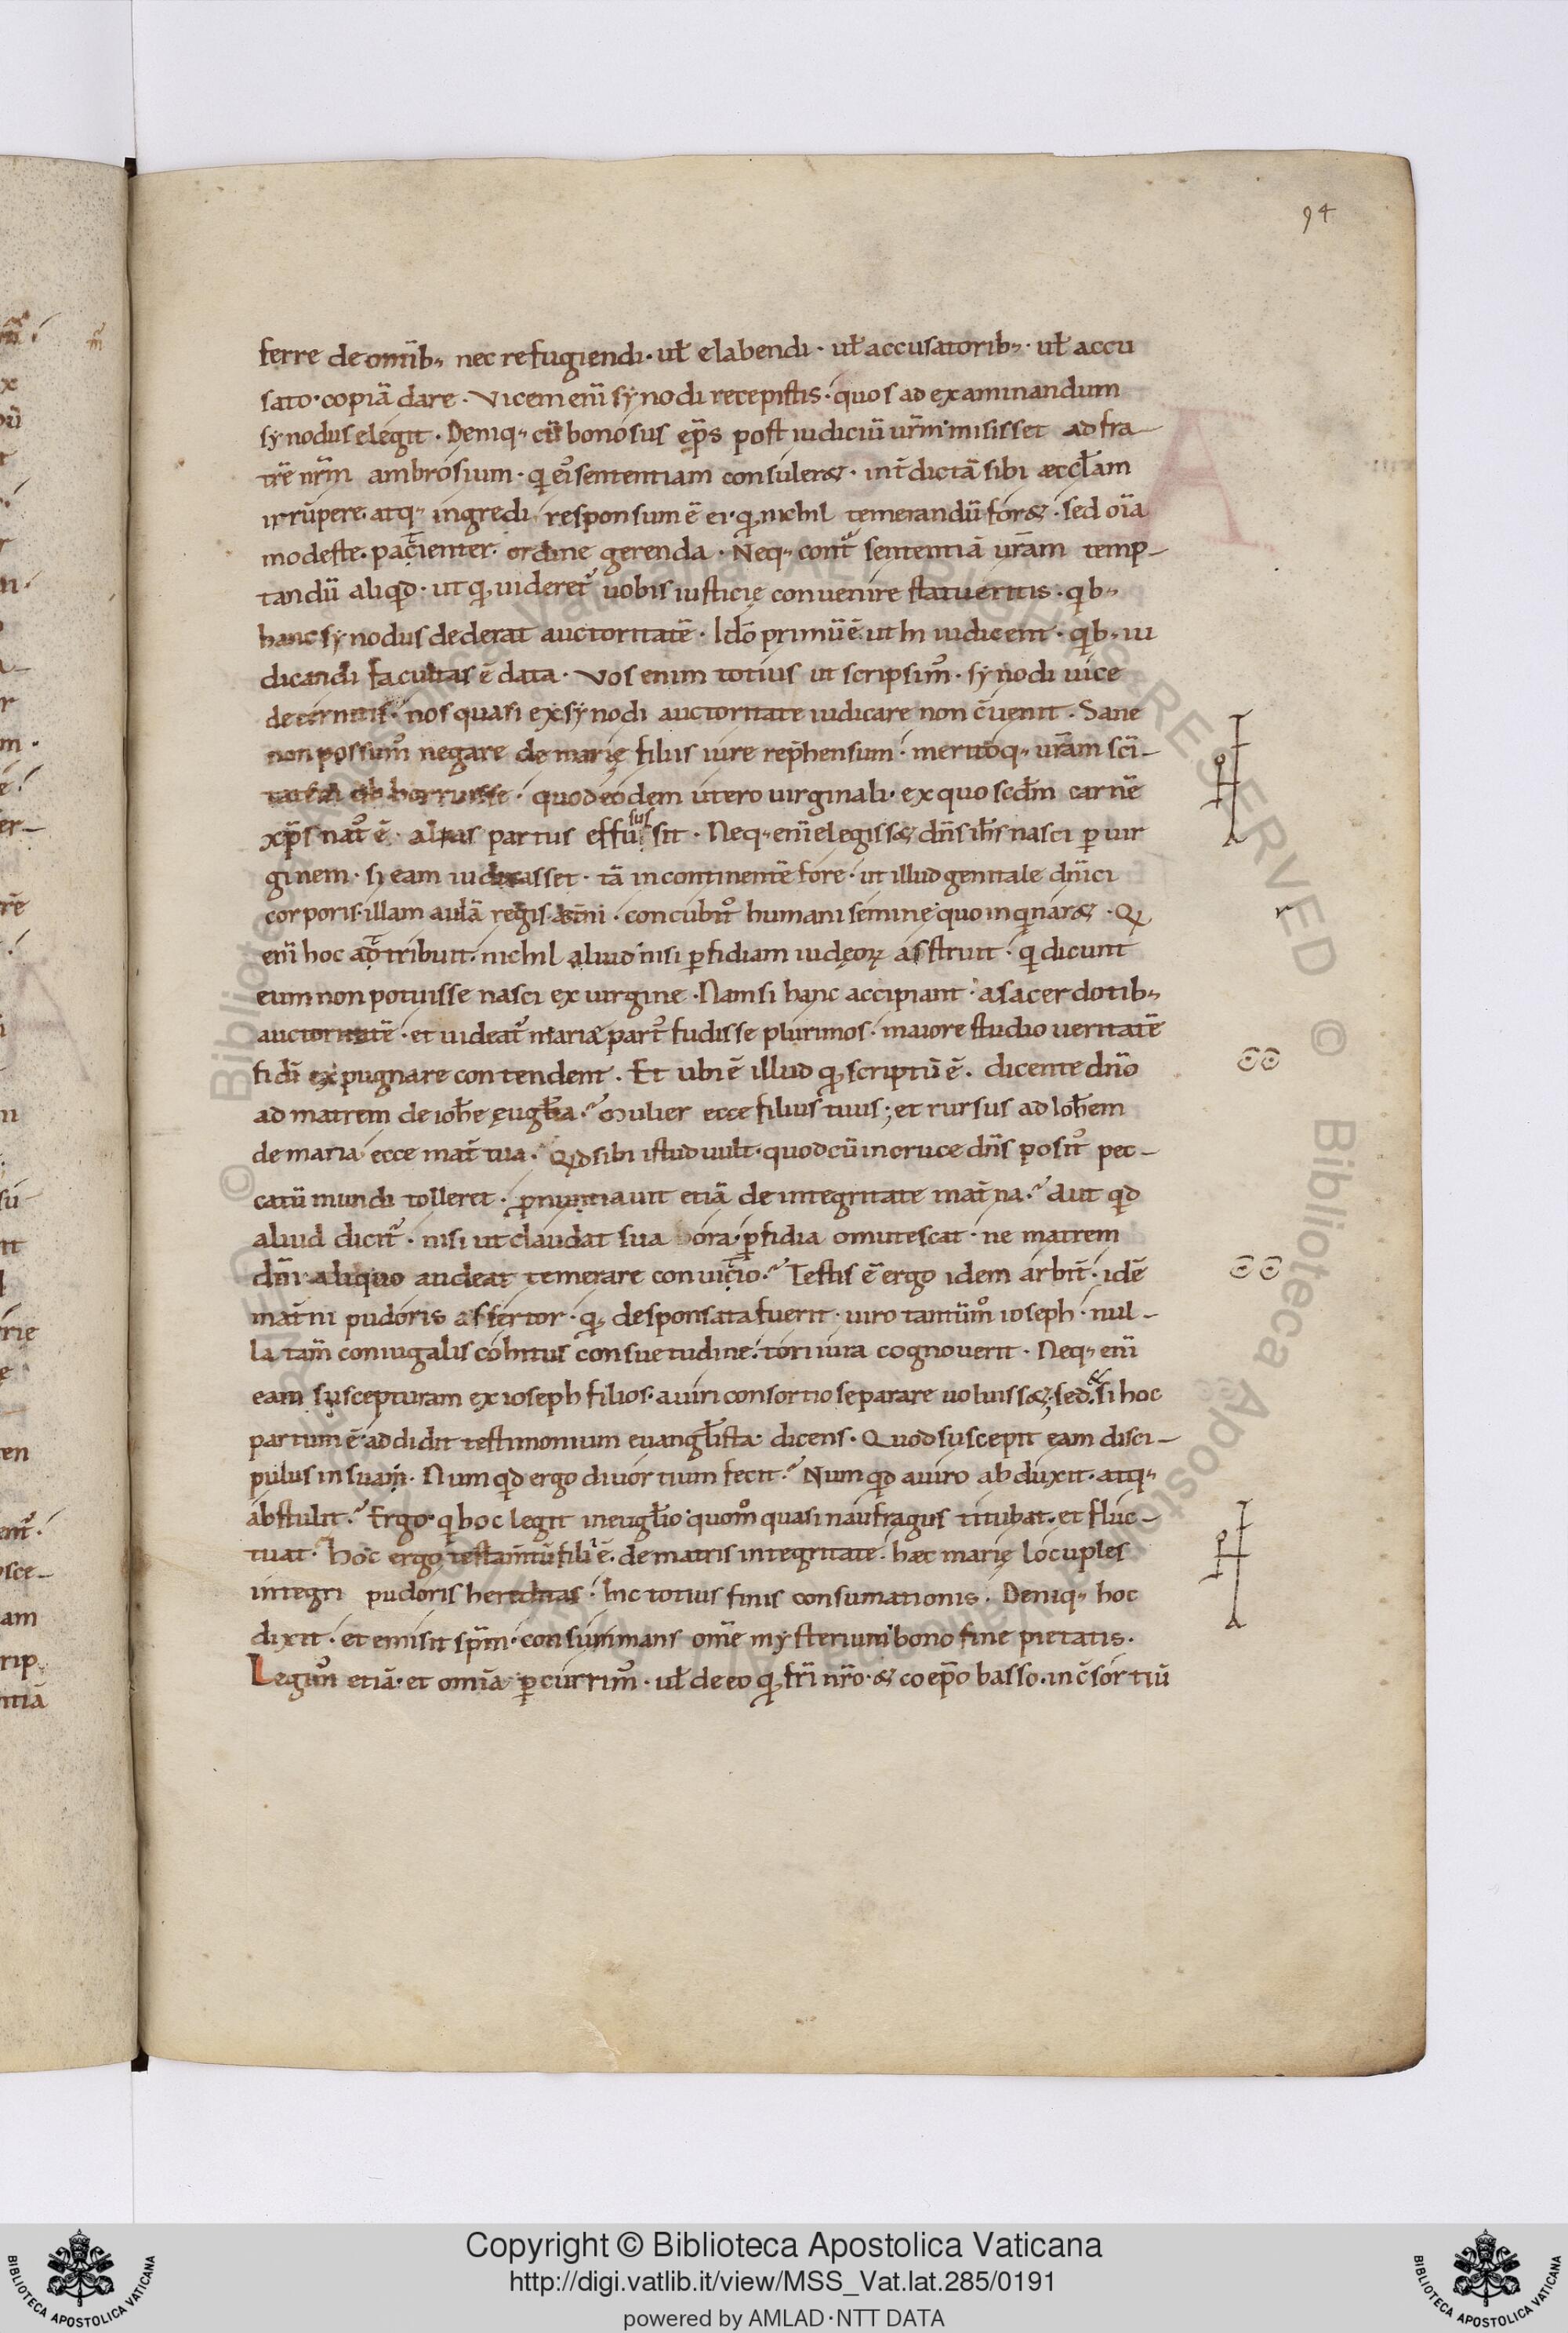 94
ferre de omib; nec refugiendi · ul̄ elabendi · ul̄ accusatorib; · ul̄ accu
sato · copiā dare · Vicem enī synodi recepistis · quos ad examinandum
synodus elegit · Deniq; cū bonosus ep̄s post iudiciū ur̄m misisset ad fra-
trē nr̄m ambrosium · q ei᾽ sententiam consuler& · int̄dictā sibi æccl̄am
irrūpere · atq; ingredi · responsum ē ei · q nichil temerandū for& · sed oīa
modeste · pacienter · ordine gerenda · Neq; cont᷑ sententiā ur̄am temp-
tandū aliqd · ut q uideret᷑ uobis iusticię conuenire statueritis · qb;
hanc synodus dederat auctoritatē · Idō primū ē · ut hi iudicent · qb; iu
dicandi facultas ē data · Vos enim totius ut scripsim᾽ · synodi uice
decernitis · nos quasi ex synodi auctoritate iudicare non c̄uenit · Sane
non possum᾽ negare de marię filiis iure rep̄hensum · meritoq; ur̄am sc̄i-
tatem abhorruisse · quod eodem utero uirginali · ex quo scd̄m carnē
xp̄s nat᾽ ē · alius partus effusus sit · Neq; enī elegiss& dn̄s ih̄s nasci p uir
ginem · si eam iudicasset · tā incontinentē fore · ut illud genitale dn̄ici
corporis · illam aulā regis · concubit᾽ humani semine quo inqnar& · Q
enī hoc adtribuit · nichil aliud nisi pfidiam iudęoꝝ asstruit · q dicunt
eum non potuisse nasci ex uirgine · Nam si hanc accipiant · a sacerdotib;
auctoritatē · et uideat᷑ mariæ part᾽ fudisse plurimos · maiore studio ueritatē
fidī expugnare contendent · Et ubi ē illud q scriptū ē · dicente dn̄o
ad matrem de ioh̄e ęugl̄ia · Mulier ecce filius tuus ; et rursus ad ioh̄em
de maria · ecce mat̄ tua · Qd sibi istud uult · quod cū in cruce dn̄s posit᾽ pec-
catū mundi tolleret · pnuntiauit etiā de integritate mat̄na · Aut qd
aliud dicit᷑ · nisi ut claudat sua ora · pfidia omutescat · ne matrem
dn̄i aliquo audeat temerare conuicio · Testis ē ergo idem arbit̄ · idē
mat̄ni pudoris assertor · q desponsata fuerit · uiro tantūm᾽ ioseph · nul-
la tam̄ coniugalis cohitus consuetudine · tori iura cognouerit · Neq; enī
eam suscepturam ex ioseph filios · a uiri consortio separare uoluiss& ; sed & si hoc
partum ē · addidit testimonium euangl̄ista dicens · Quod suscepit eam disci-
pulus in suam · Numqd ergo diuortium fecit · Numqd a uiro abduxit · atq;
abstulit · Ergo · q hoc legit in eugl̄io quom᾽ quasi naufragus titubat · et fluc-
tuat · Hoc ergo testam̄tū filii ē · de matris integritate · hæc marię locuples
integri pudoris hereditas · hic totius finis consumationis · Deniq; hoc
dixit · et emisit sp̄m · consummans om̄e mysterium bono fine pietatis ·
Legim᾽ etiā · et omīa pcurrim᾽ · ul̄ de eo q fr̄i nr̄o · & coep̄o basso · in c̄sortiū
r
Copyright © Biblioteca Apostolica Vaticana
http://digi.vatlib.it/view/MSS_Vat.lat.285/0191
powered by AMLAD·NTT DATA